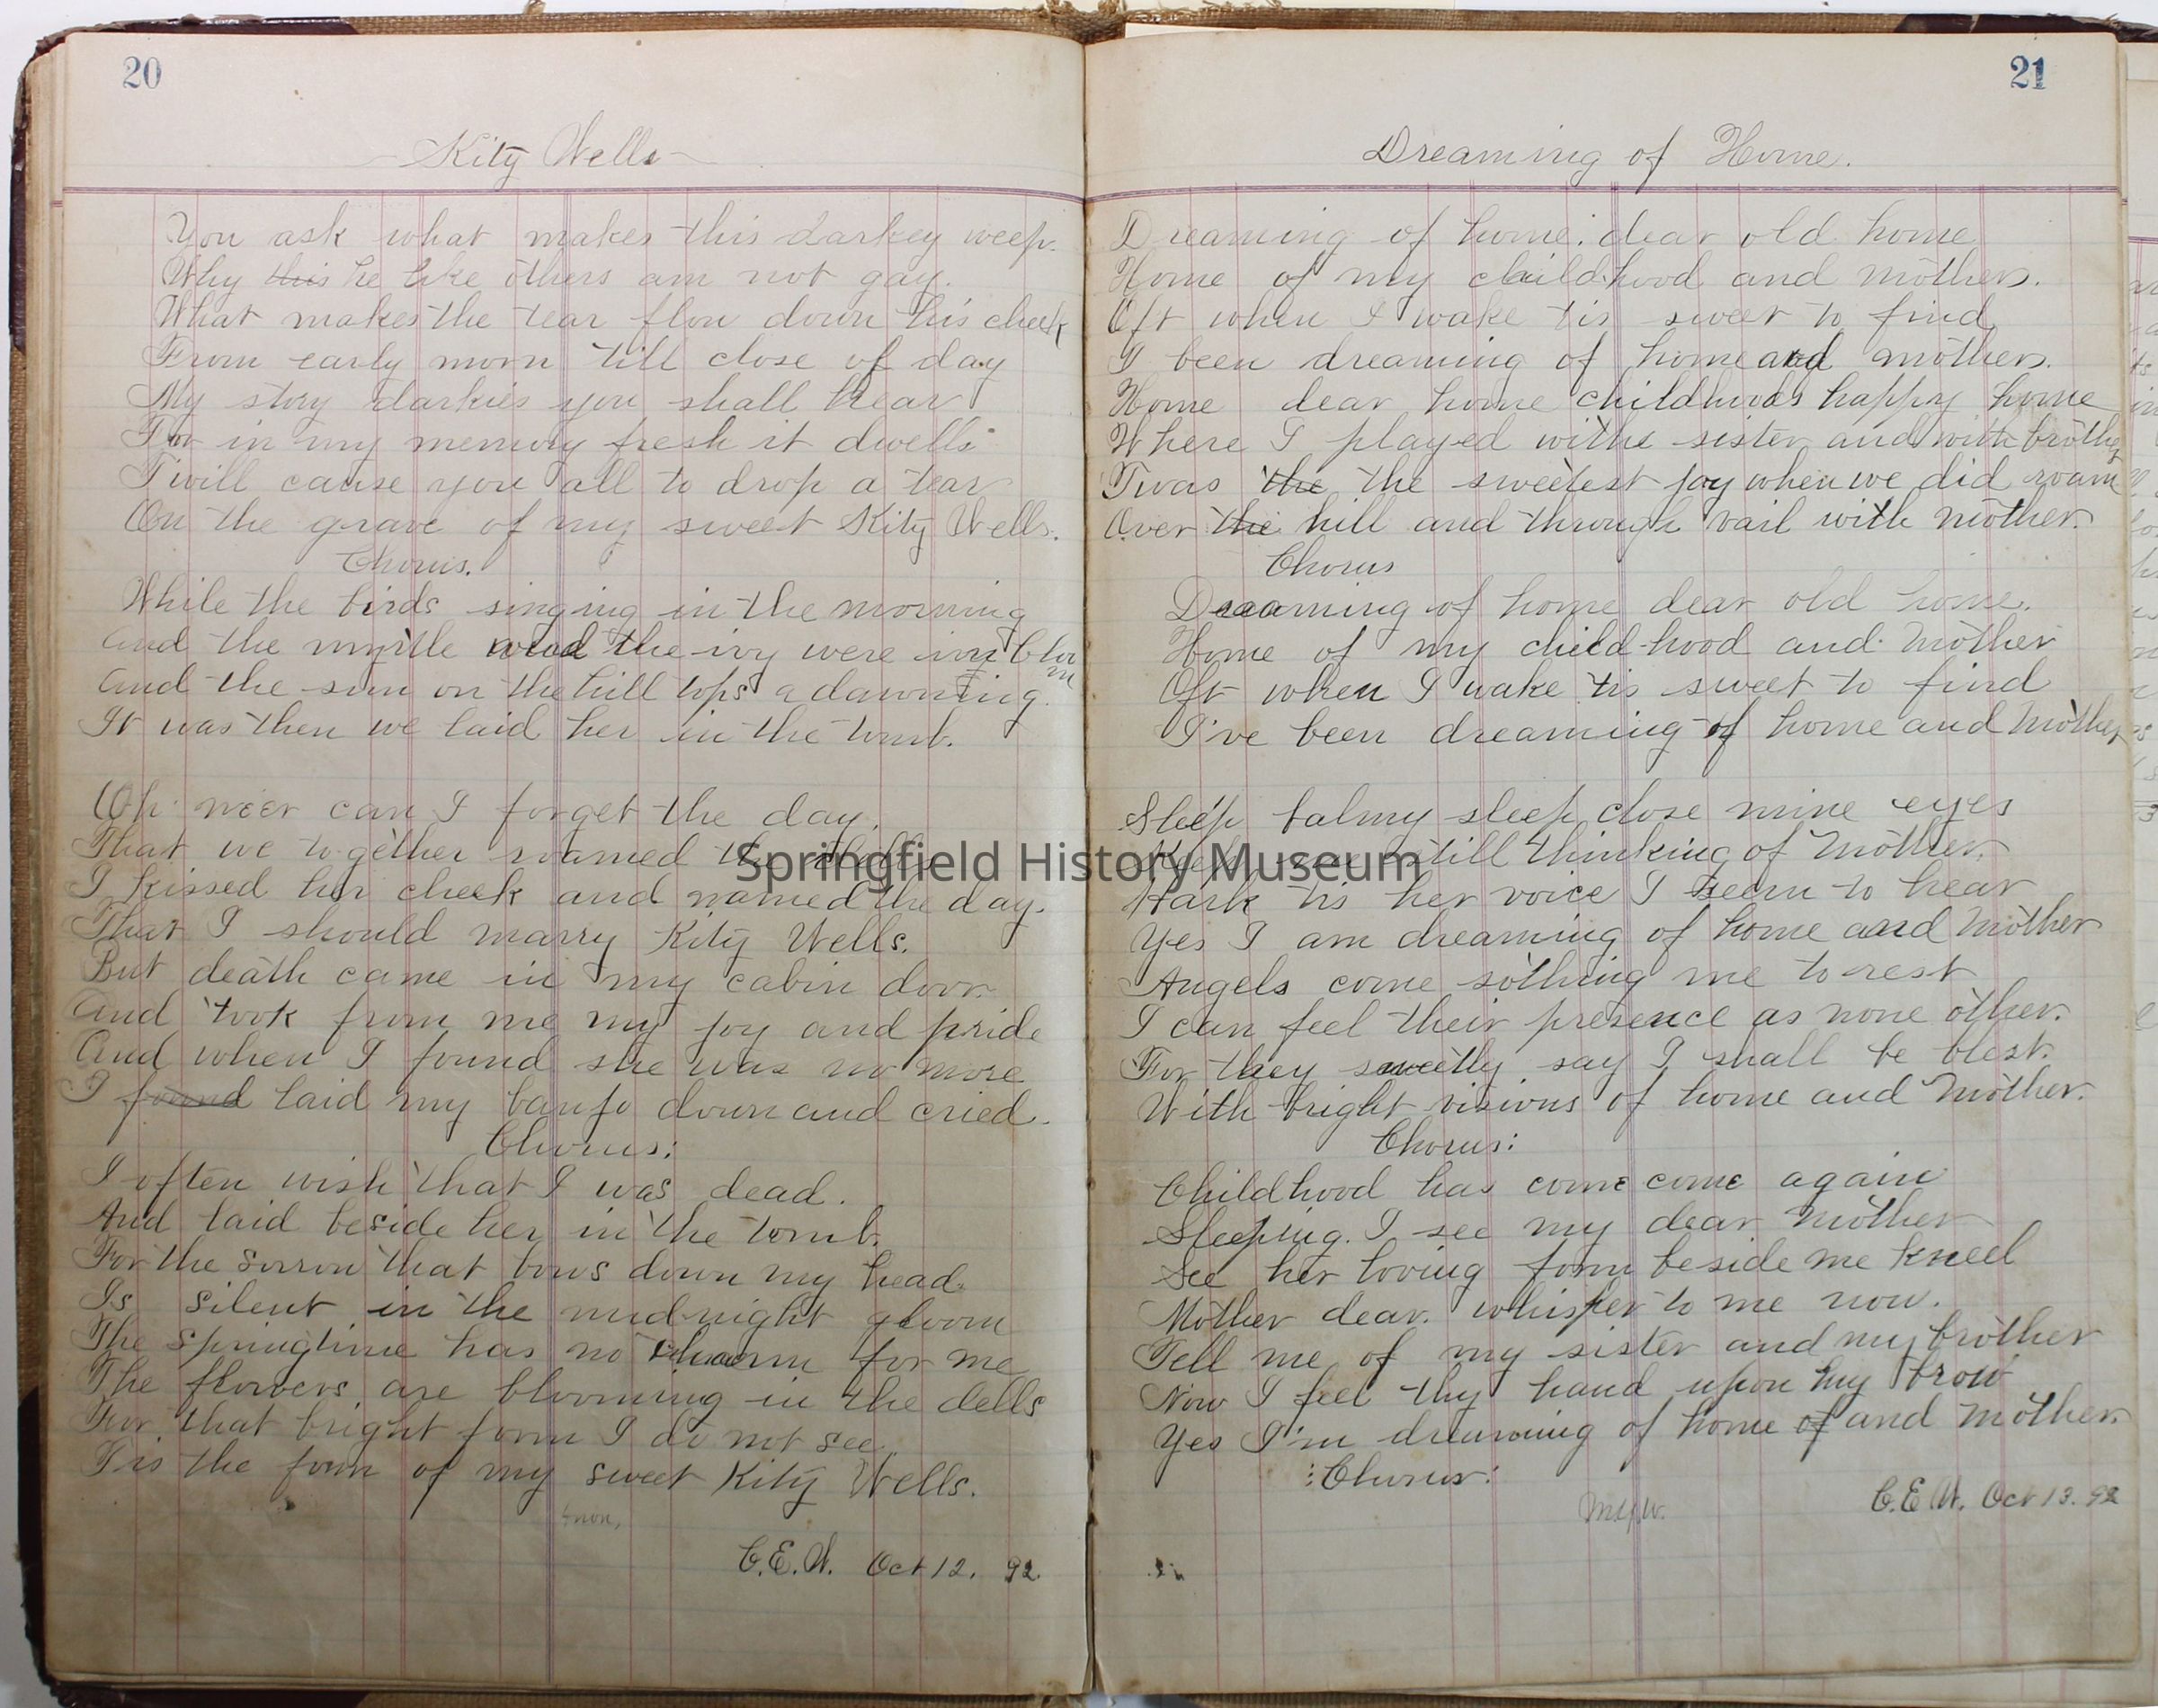 20
Kity Wells
You ask what makes this darkey weep.
Why this he like others am not gay.
What makes the tear flow down his cheek
From early morn till close of day
My story darkies you shall hear
For in my memory fresh it dwells
Twill cause you all to drop a tear
On the grave of my sweet Kity Wells.
Chorus.
While the birds singing in the morning
and the myrtle and the ivy were in bloom
and the sun on the hill tops a dawning.
It was then we laid her in the tomb.
Oh neer can I forget the day.
That we together roamed the dells
I kissed her cheek and named the day.
That I should marry Kity Wells.
But death came in my cabin door.
and took from me my joy and pride
And when I found she was no more
I found laid my banjo down and cried.
Chorus:
I often wish that I was dead.
And laid beside her in the tomb.
For the sorrow that bows down my head.
Is silent in the midnight gloom
The springtime has no charm for me
The flowers are blooming in the dells
For that bright form I do not see
Tis the form of my sweet Kity Wells.
C.E.W. Oct 12. 92.
21
Dreaming of Home.
Dreaming of home. dear old home
Home of my childhood and mother.
Oft when I wake tis sweet to find
I been dreaming of home and mother.
Home dear home childhoods happy home
Where I played withe sister and with brother
Twas the the sweetest joy when we did roam
Over the hill and through vail with mother.
Chorus
Dreaming of home dear old home.
Home of my child-hood and mother
Oft when I wake tis sweet to find
I've been dreaming of home and mother
Sleep balmy sleep close mine eyes
still thinking of mother.
Hark tis her voice I seem to hear
Yes I am dreaming of home and mother
Angels come sothing me to rest
I can feel their presence as none other.
For they sweetly say I shall be blest.
With bright visions of home and mother.
Chorus:
Childhood has come come again
Sleeping. I see my dear mother
See her loving form beside me kneel
Mother dear. whisper to me now.
Tell me of my sister and my brother
Now I feel thy hand upon my brow
Yes I'm dreaming of home of and mother.
:Chorus:
C.E.W. Oct 13. 92
Springfield History Museum